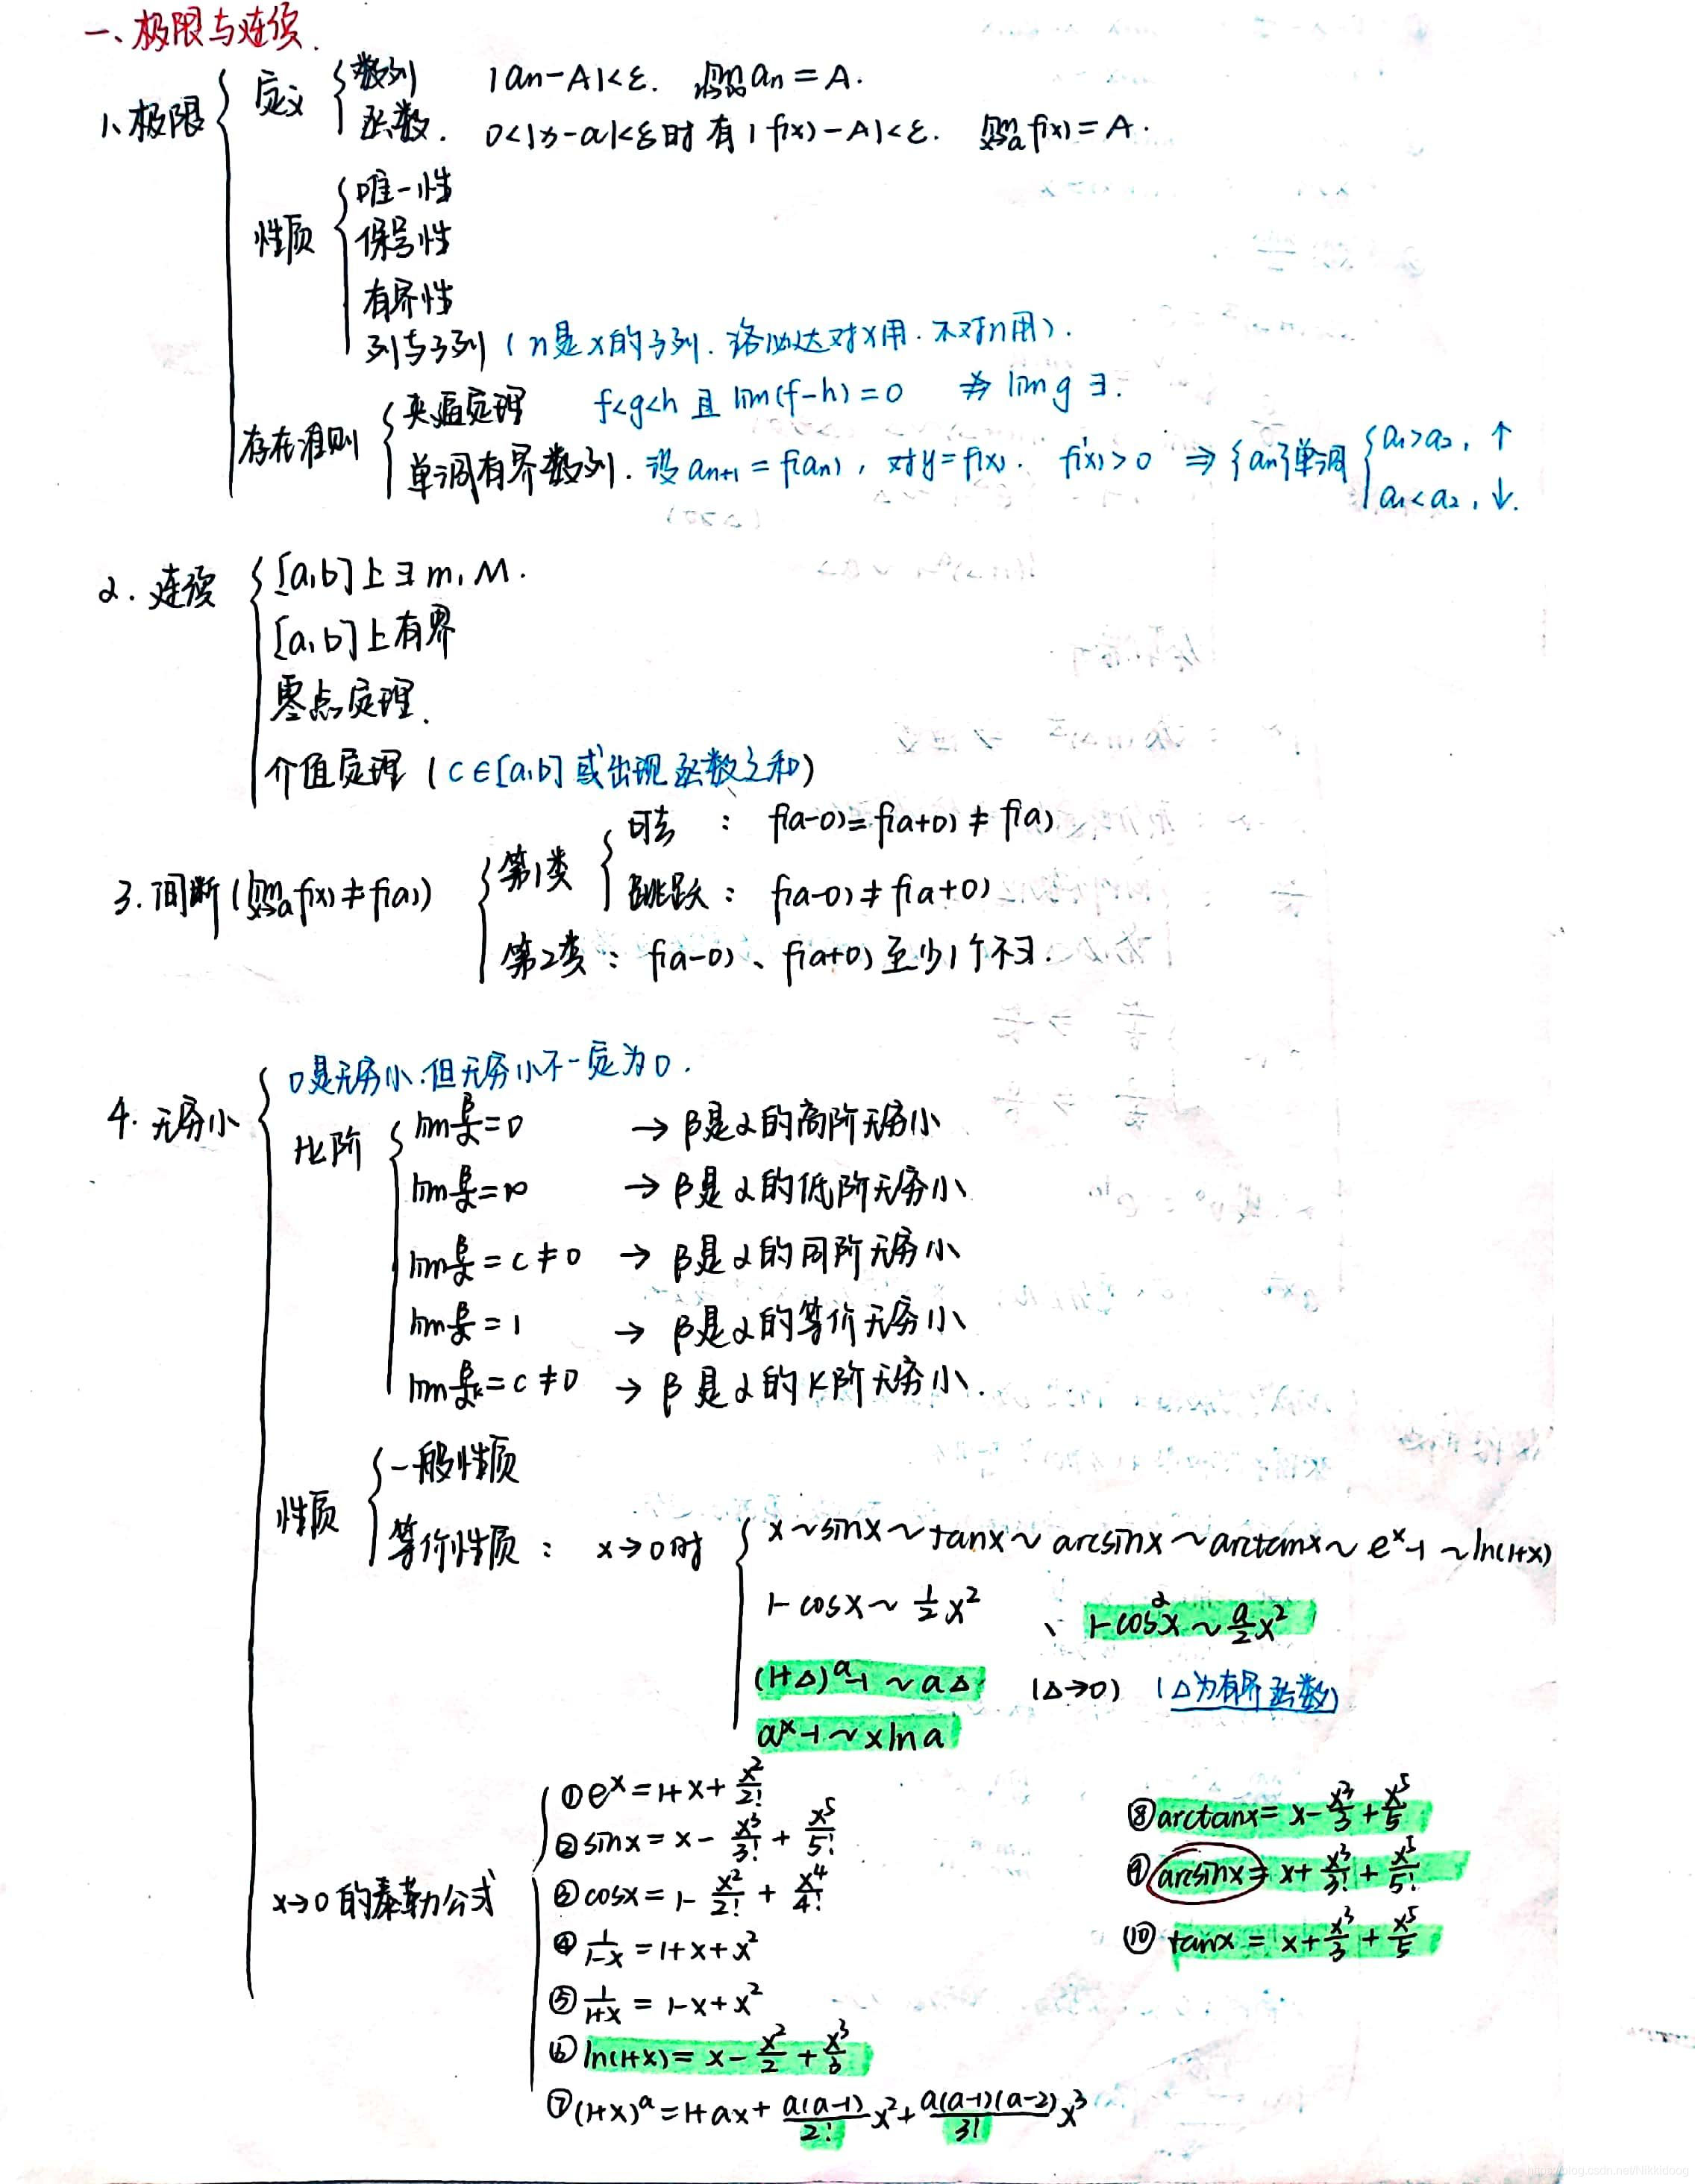 一、极限与连续.
1、极限
定义
数列 |an-A|<ε. lim n→∞ an = A.
函数. 0<|x-a|<δ时 有 |f(x)-A|<ε. lim x→a f(x) = A.
性质
唯一性
保号性
有界性
列与子列 (n是x的子列. 洛必达对x用. 不对n用).
存在准则
夹逼定理 f<g<h 且 lim(f-h)=0 ⇏ lim g ∃.
单调有界数列. 设 an+1 = f(an), 对y=f(x). f'(x)>0 ⇒ {an}单调 { a1>a2, ↑
a1<a2, ↓.
2. 连续
[a,b]上∃ m, M.
[a,b]上有界
零点定理.
介值定理 (c∈[a,b] 或出现函数之和)
3. 间断 (lim x→a f(x) ≠ f(a))
第1类
可去 : f(a-0) = f(a+0) ≠ f(a)
跳跃 : f(a-0) ≠ f(a+0)
第2类 : f(a-0)、f(a+0) 至少1个不∃.
4. 无穷小
0是无穷小.但无穷小不一定为0.
比阶
lim β/α = 0 → β是α的高阶无穷小
lim β/α = ∞ → β是α的低阶无穷小
lim β/α = c ≠ 0 → β是α的同阶无穷小
lim β/α = 1 → β是α的等价无穷小
lim β/α^k = c ≠ 0 → β是α的k阶无穷小.
性质
一般性质
等价性质 : x→0时
x ~ sinx ~ tanx ~ arcsinx ~ arctanx ~ e^x-1 ~ ln(1+x)
1-cosx ~ 1/2 x² 、 1-cos^a x ~ a/2 x²
(1+Δ)^a-1 ~ aΔ (Δ→0) (Δ为有界函数)
a^x-1 ~ x ln a
x→0的泰勒公式
① e^x = 1+x+x²/2!
② sinx = x - x³/3! + x⁵/5!
③ cosx = 1 - x²/2! + x⁴/4!
④ 1/(1-x) = 1+x+x²
⑤ 1/(1+x) = 1-x+x²
⑥ ln(1+x) = x - x²/2 + x³/3
⑦ (1+x)^a = 1+ax+ a(a-1)/2! x² + a(a-1)(a-2)/3! x³
⑧ arctanx = x - x³/3 + x⁵/5
⑨ arcsinx = x + x³/3! + x⁵/5!
⑩ tanx = x + x³/3 + x⁵/5